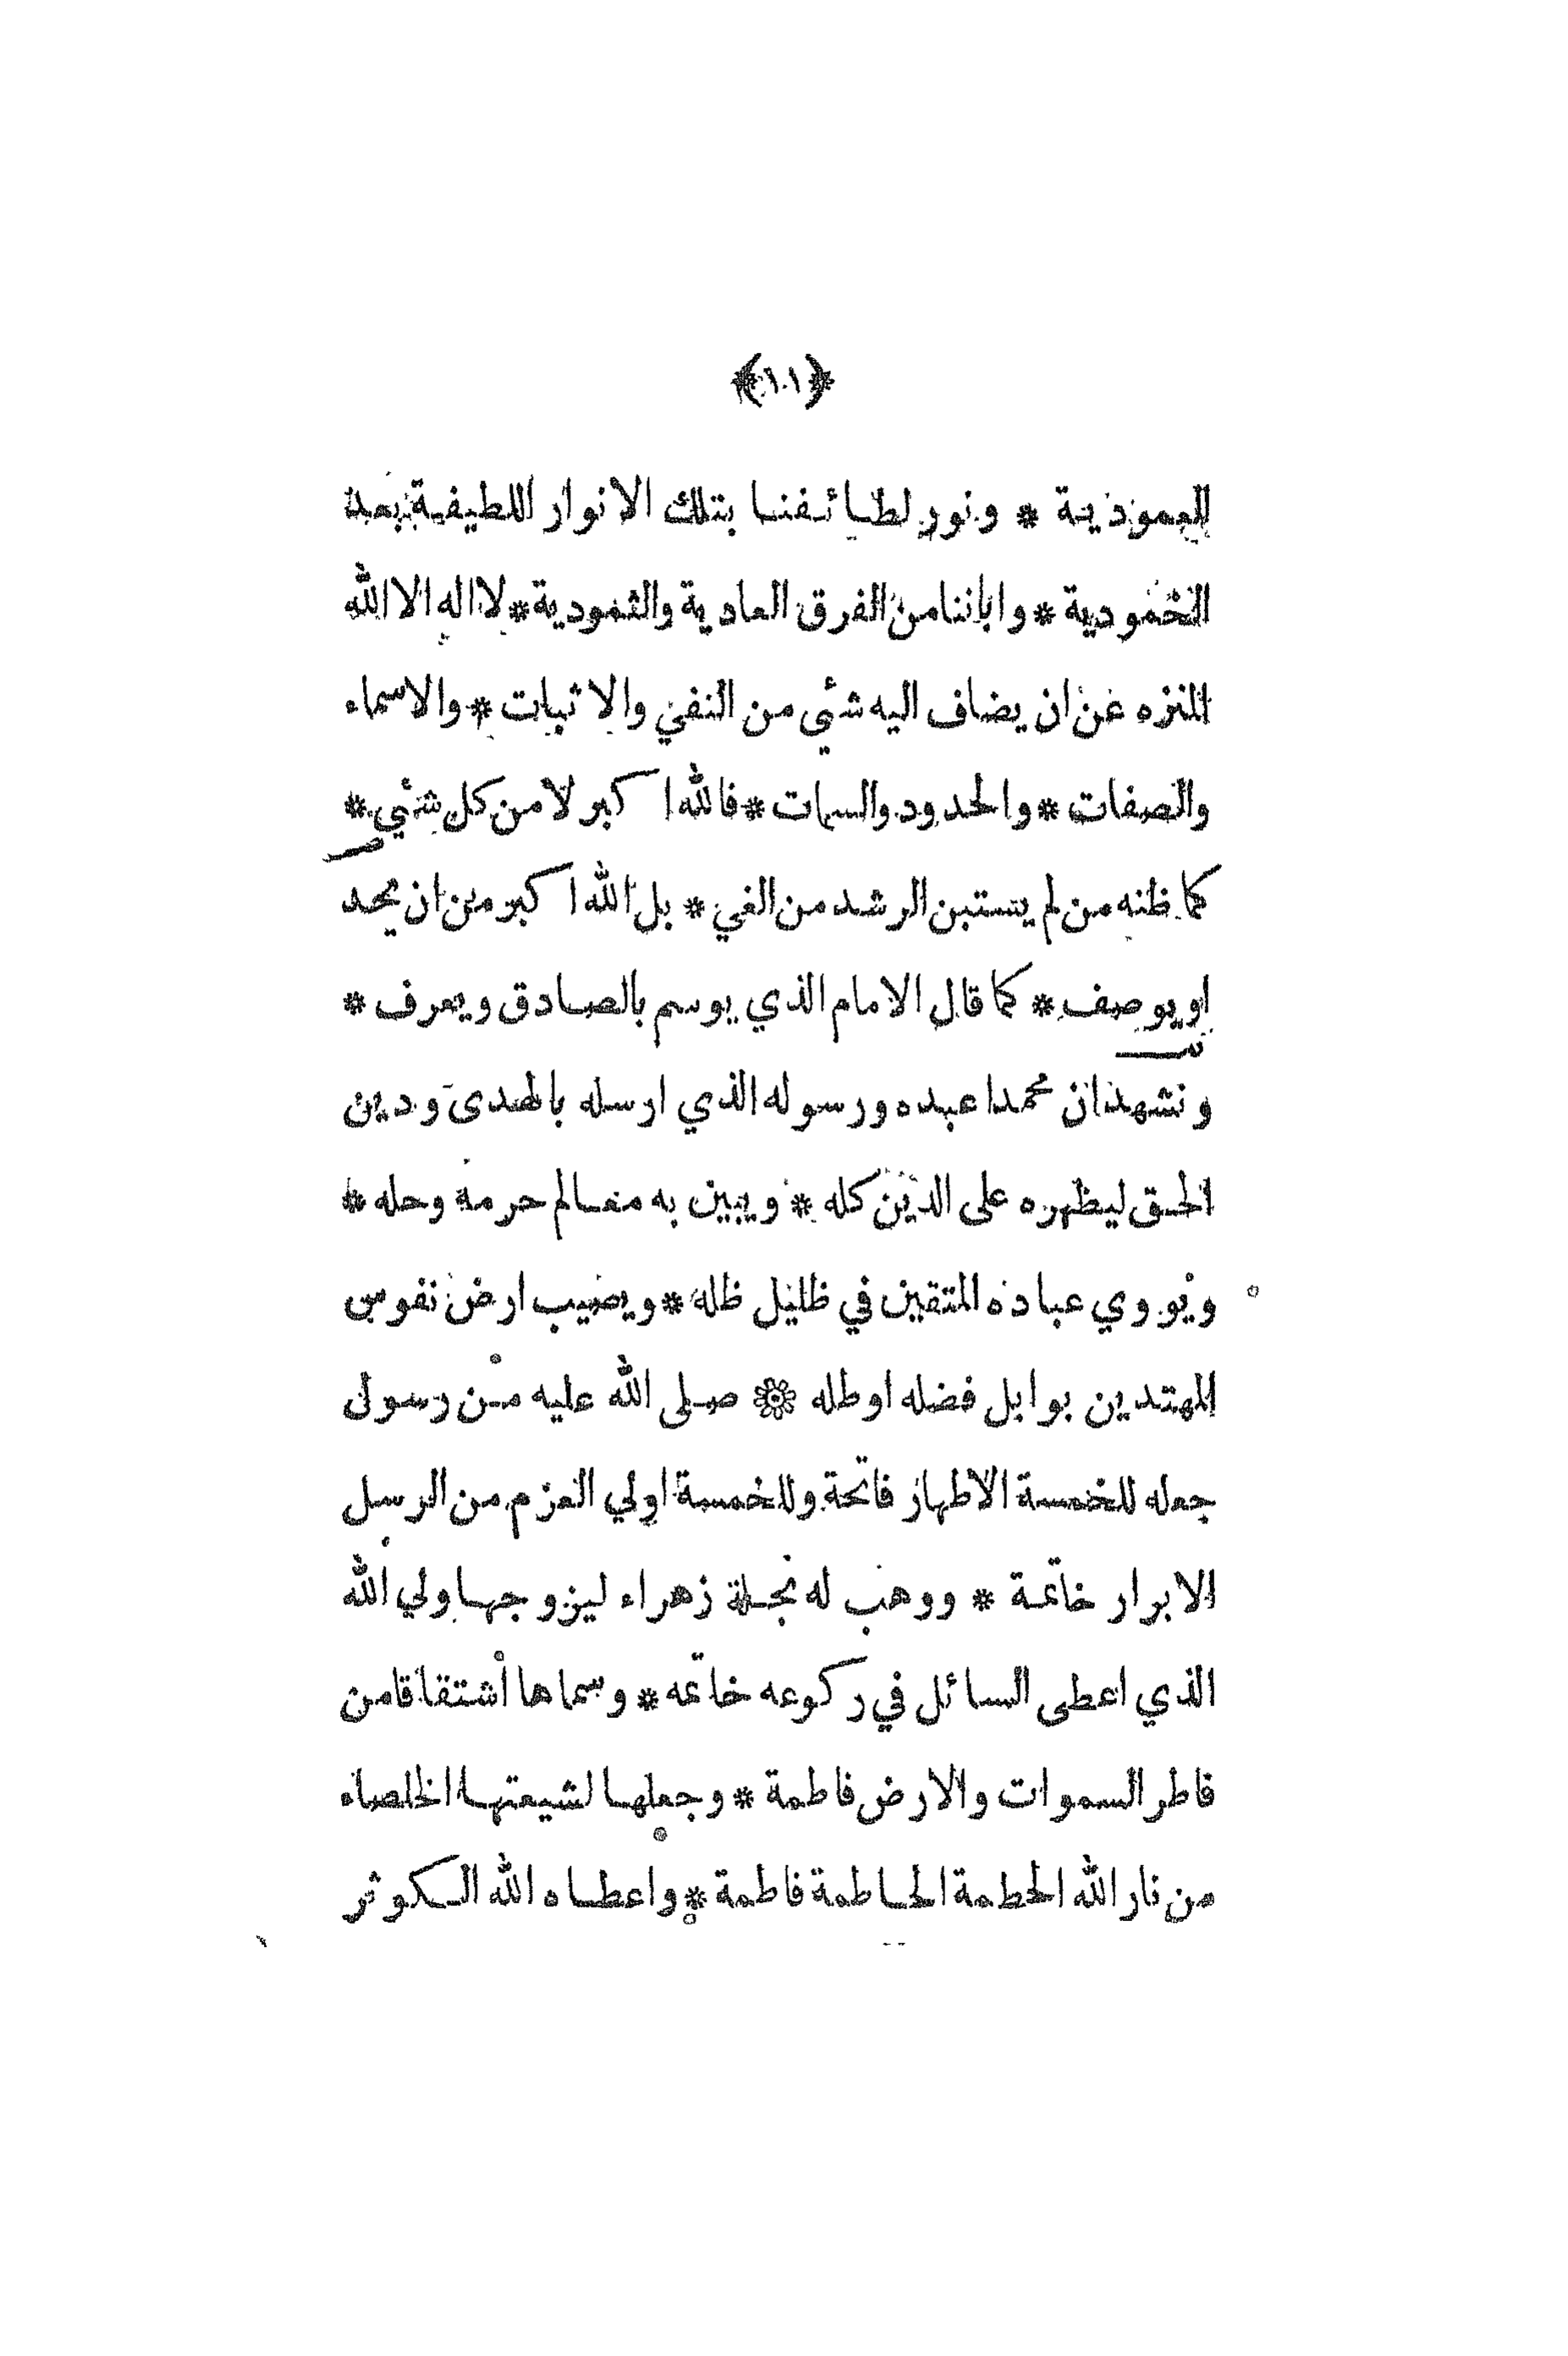 ﴿١٠١﴾
العمودية * ونور لطائفنا بتلك الانوار اللطيفة بعد
الخمودية * واباننا من الفرق العادية والثمودية * لا اله الا الله
المنزه عن ان يضاف اليه شئي من النفي والاثبات * والاسماء
والصفات * والحدود والسمات * فالله اكبر لا من كل شئي *
كما ظنه من لم يستبن الرشد من الغي * بل الله اكبر من ان يحد
او يوصف * كما قال الامام الذي يوسم بالصادق ويعرف *
ونشهد ان محمدا عبده ورسوله الذي ارسله بالهدى ودين
الحق ليظهره على الدين كله * ويبين به معالم حرمه وحله *
ويووي عباده المتقين في ظليل ظله * ويصيب ارض نفوس
المهتدين بوابل فضله او طله ۞ صلى الله عليه من رسول
جعله للخمسة الاطهار فاتحة وللخمسة اولي العزم من الرسل
الابرار خاتمة * ووهب له نجلة زهراء ليزوجها ولي الله
الذي اعطى السائل في ركوعه خاتمه * وسماها اشتقاقا من
فاطر السموات والارض فاطمة * وجعلها لشيعتها الخلصاء
من نار الله الحطمة الحاطمة فاطمة * واعطاه الله الكوثر